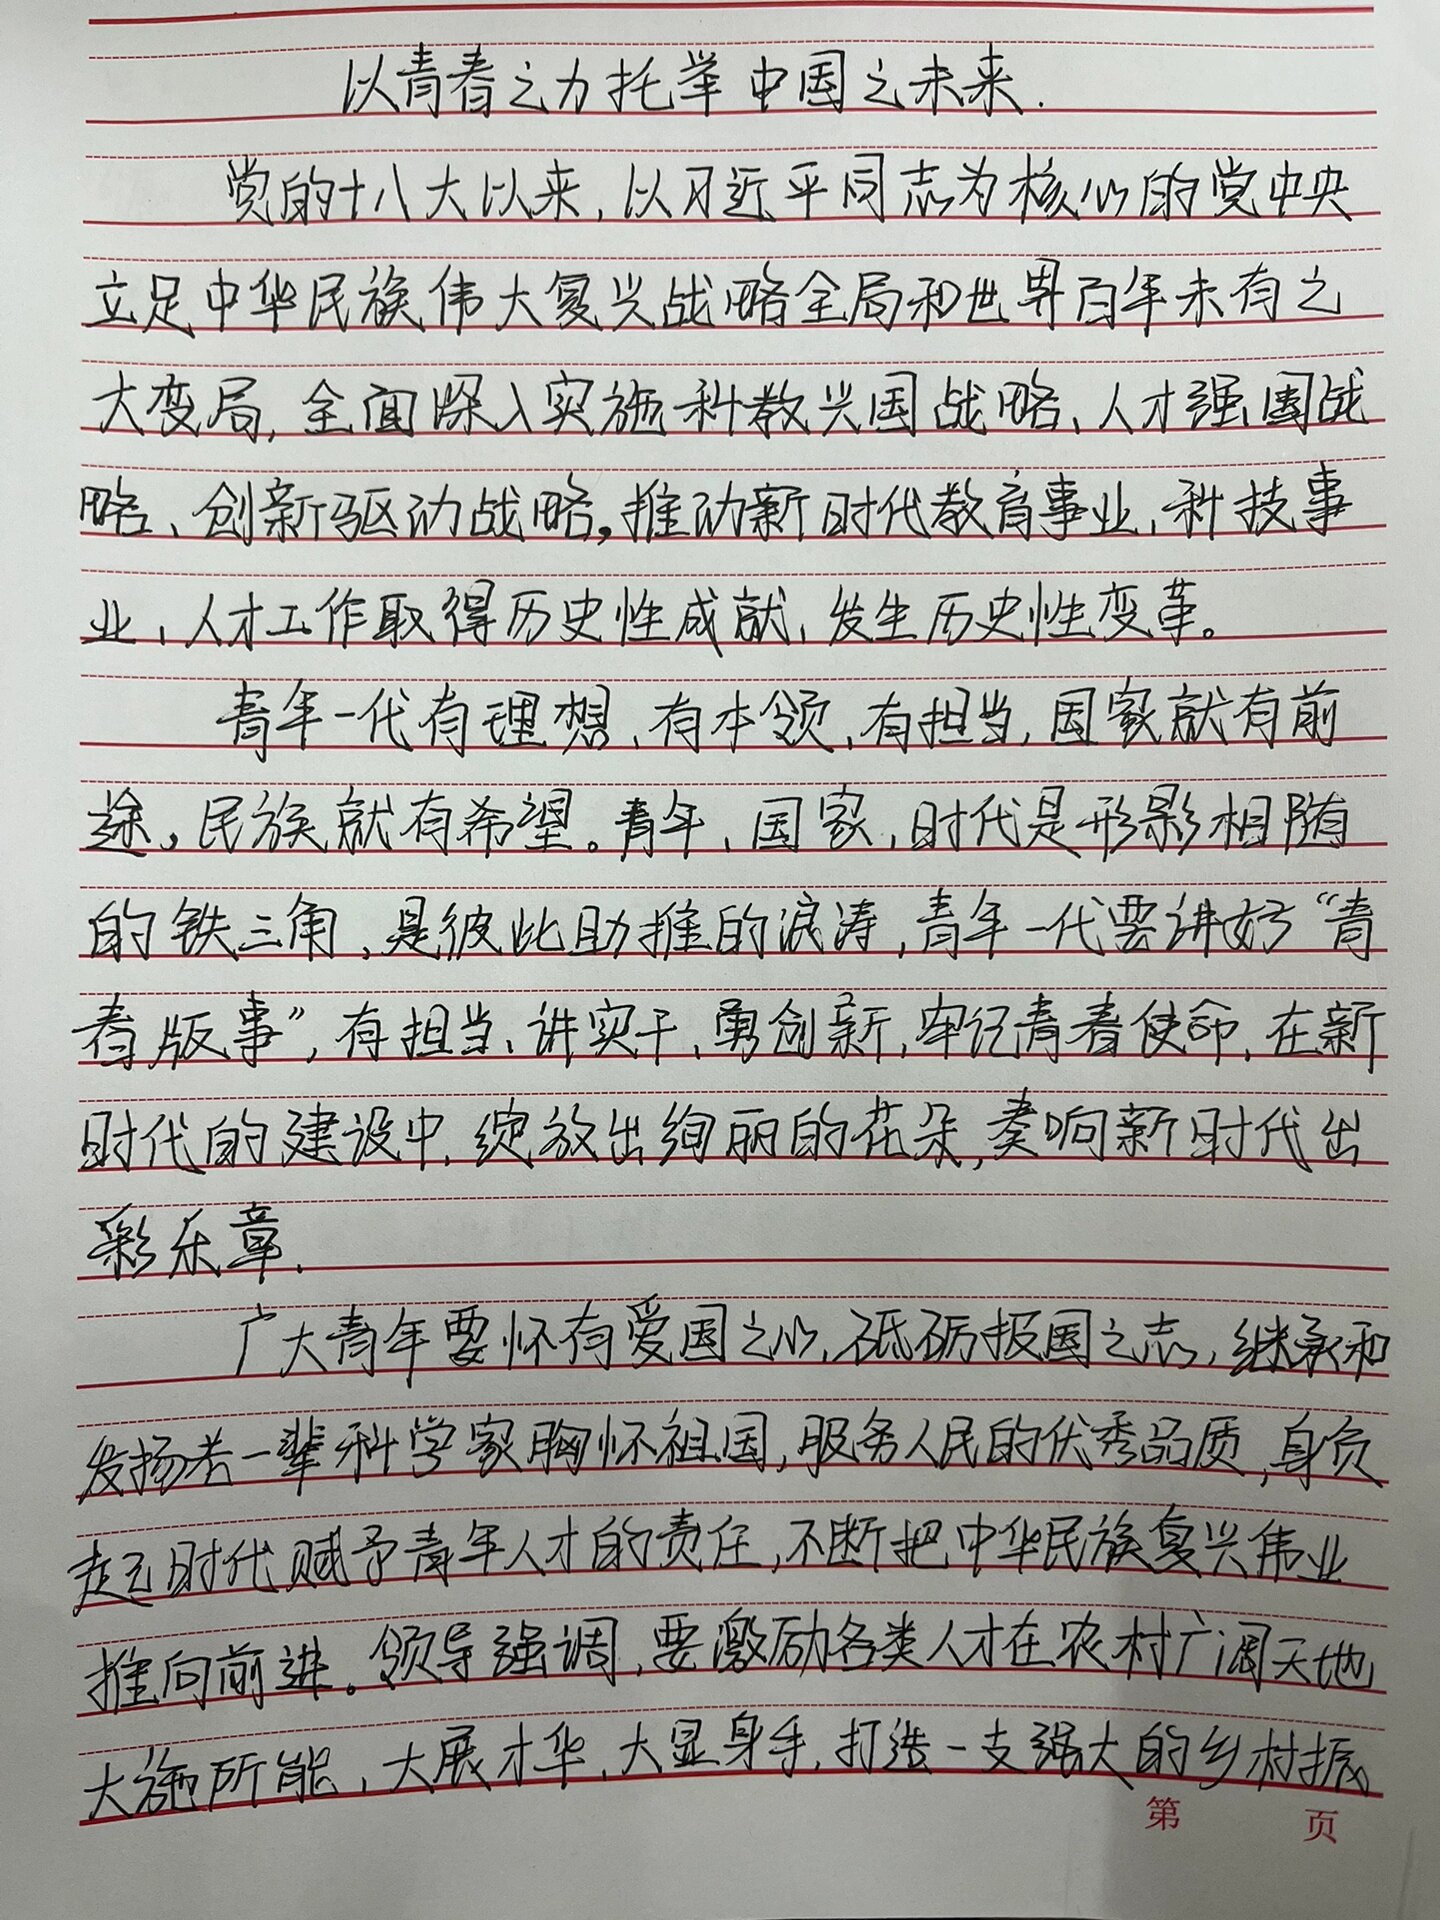 以青春之力托举中国之未来.
党的十八大以来,以习近平同志为核心的党中央
立足中华民族伟大复兴战略全局和世界百年未有之
大变局,全面深入实施科教兴国战略、人才强国战
略、创新驱动战略,推动新时代教育事业、科技事
业、人才工作取得历史性成就、发生历史性变革。
青年一代有理想、有本领、有担当,国家就有前
途,民族就有希望。青年、国家、时代是形影相随
的铁三角,是彼此助推的浪涛,青年一代要讲好“青
春版事”,有担当、讲实干、勇创新,牢记青春使命,在新
时代的建设中,绽放出绚丽的花朵,奏响新时代出
彩乐章.
广大青年要怀有爱国之心,砥砺报国之志,继承和
发扬老一辈科学家胸怀祖国,服务人民的优秀品质,身负
起时代赋予青年人才的责任,不断把中华民族复兴伟业
推向前进。领导强调,要激励各类人才在农村广阔天地
大施所能,大展才华,大显身手,打造一支强大的乡村振
第 页